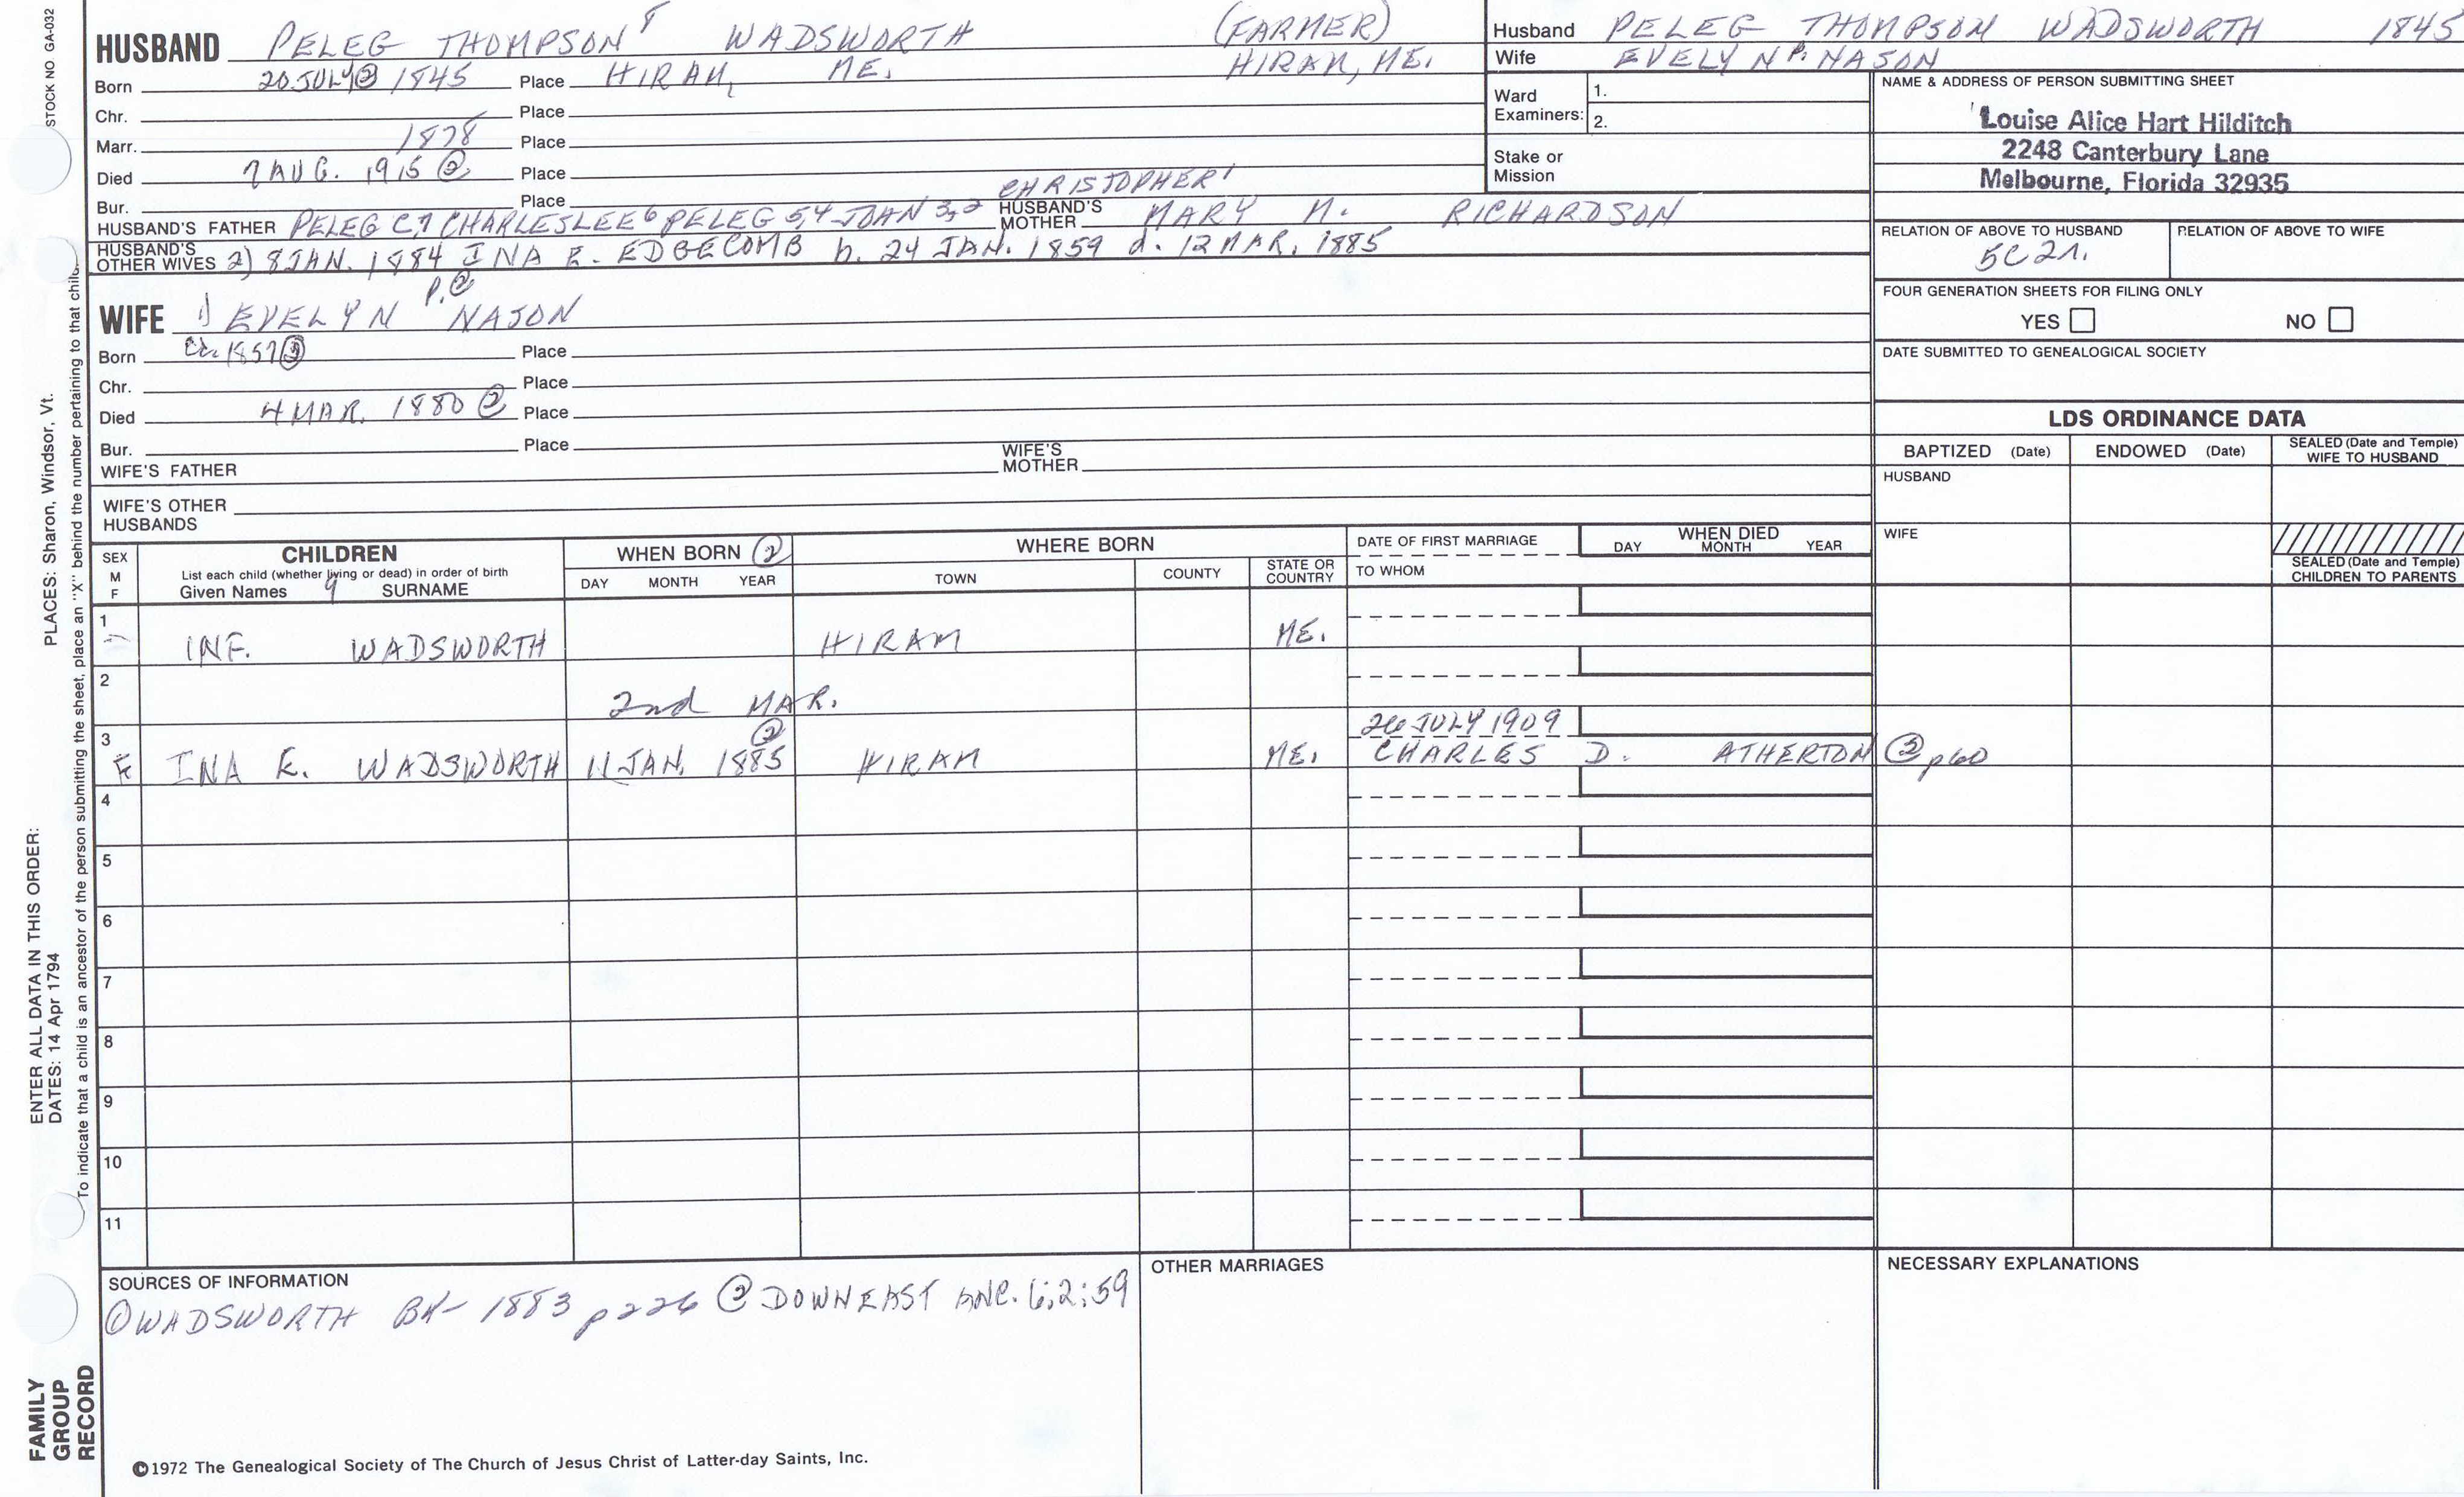 STOCK NO GA-032
HUSBAND PELEG THOMPSON 8 WADSWORTH (FARMER)
Born 20 JULY ② 1845 Place HIRAM, ME. HIRAM, ME.
Chr. Place
Marr. 1878 Place
Died 7 AUG. 1915 ② Place
Bur. Place CHRISTOPHER 1
HUSBAND'S FATHER PELEG C,7 CHARLES LEE 6 PELEG 5,4 JOHN 3,2 HUSBAND'S MOTHER MARY M. RICHARDSON
HUSBAND'S OTHER WIVES 2) 8 JAN. 1884 INA E. EDGECOMB b. 24 JAN. 1859 d. 12 MAR. 1885
P. ②
WIFE 1) EVELYN NASON
Born Ca. 1857 ③ Place
Chr. Place
Died 4 MAR. 1880 ② Place
Bur. Place
WIFE'S FATHER WIFE'S MOTHER
WIFE'S OTHER HUSBANDS
Husband PELEG THOMPSON WADSWORTH 1845
Wife EVELYN P. NASON
Ward Examiners: 1.
2.
Stake or Mission
NAME & ADDRESS OF PERSON SUBMITTING SHEET
Louise Alice Hart Hilditch
2248 Canterbury Lane
Melbourne, Florida 32935
RELATION OF ABOVE TO HUSBAND RELATION OF ABOVE TO WIFE
5C2r.
FOUR GENERATION SHEETS FOR FILING ONLY
YES NO
DATE SUBMITTED TO GENEALOGICAL SOCIETY
LDS ORDINANCE DATA
BAPTIZED (Date) ENDOWED (Date) SEALED (Date and Temple) WIFE TO HUSBAND
HUSBAND
WIFE
SEALED (Date and Temple) CHILDREN TO PARENTS
SEX M F
CHILDREN
List each child (whether living or dead) in order of birth
Given Names 9 SURNAME
WHEN BORN ②
DAY MONTH YEAR
WHERE BORN
TOWN COUNTY STATE OR COUNTRY
DATE OF FIRST MARRIAGE
TO WHOM
WHEN DIED
DAY MONTH YEAR
1 INF. WADSWORTH HIRAM ME.
2 2nd MAR.
②
26 JULY 1909
3 F INA E. WADSWORTH 11 JAN. 1885 HIRAM ME. CHARLES D. ATHERTON ② p60
4
5
6
7
8
9
10
11
SOURCES OF INFORMATION
① WADSWORTH BK- 1883 p226 ② DOWNEAST ANC. 6:2:59
OTHER MARRIAGES
NECESSARY EXPLANATIONS
©1972 The Genealogical Society of The Church of Jesus Christ of Latter-day Saints, Inc.
FAMILY GROUP RECORD
ENTER ALL DATA IN THIS ORDER:
DATES: 14 Apr 1794
PLACES: Sharon, Windsor, Vt.
To indicate that a child is an ancestor of the person submitting the sheet, place an "X" behind the number pertaining to that child.